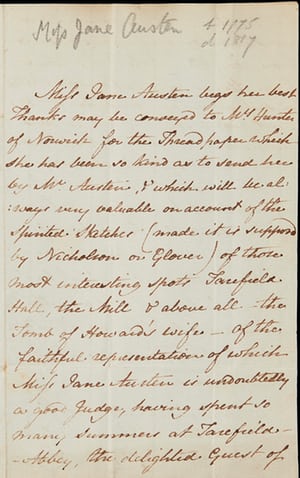 Miss Jane Austen b 1775
d 1817
Miss Jane Austen begs her best
Thanks may be conveyed to Mrs Hunter
of Norwich for the Threadpaper which
she has been so kind as to send her
by Mr Austen, & which will be al:
:ways very valuable on account of the
spirited Sketches (made it is supposed
by Nicholson or Glover) of those
most interesting Spots, Tarefield
Hall, the Mill, & above all the
Tomb of Howard's wife – of the
faithful representation of which
Miss Jane Austen is undoubtedly
a good Judge, having spent so
many summers at Tarefield –
– Abbey, the delighted Guest of